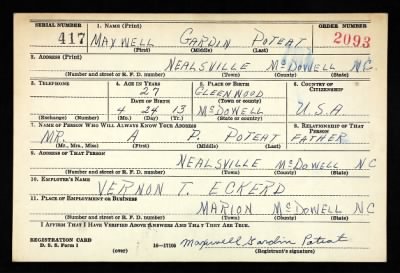 SERIAL NUMBER 1. NAME (Print) ORDER NUMBER
417 MAXWELL GARDIN POTEAT 2093
(First) (Middle) (Last)
2. ADDRESS (Print)
NEALSVILLE McDOWELL N.C.
(Number and street or R. F. D. number) (Town) (County) (State)
3. TELEPHONE 4. AGE IN YEARS 5. PLACE OF BIRTH 6. COUNTRY OF CITIZENSHIP
27 GLEENWOOD
DATE OF BIRTH (Town or county)
4 24 13 McDOWELL U.S.A.
(Exchange) (Number) (Mo.) (Day) (Yr.) (State or country)
7. NAME OF PERSON WHO WILL ALWAYS KNOW YOUR ADDRESS 8. RELATIONSHIP OF THAT PERSON
MR. A P. POTEAT FATHER
(Mr., Mrs., Miss) (First) (Middle) (Last)
9. ADDRESS OF THAT PERSON
NEALSVILLE McDOWELL N.C
(Number and street or R. F. D. number) (Town) (County) (State)
10. EMPLOYER'S NAME
VERNON T. ECKERD
11. PLACE OF EMPLOYMENT OR BUSINESS
MARION McDOWELL NC
(Number and street or R. F. D. number) (Town) (County) (State)
I AFFIRM THAT I HAVE VERIFIED ABOVE ANSWERS AND THAT THEY ARE TRUE.
REGISTRATION CARD
D. S. S. Form 1 (over) 16—17105 Maxwell Gardin Poteat
(Registrant's signature)